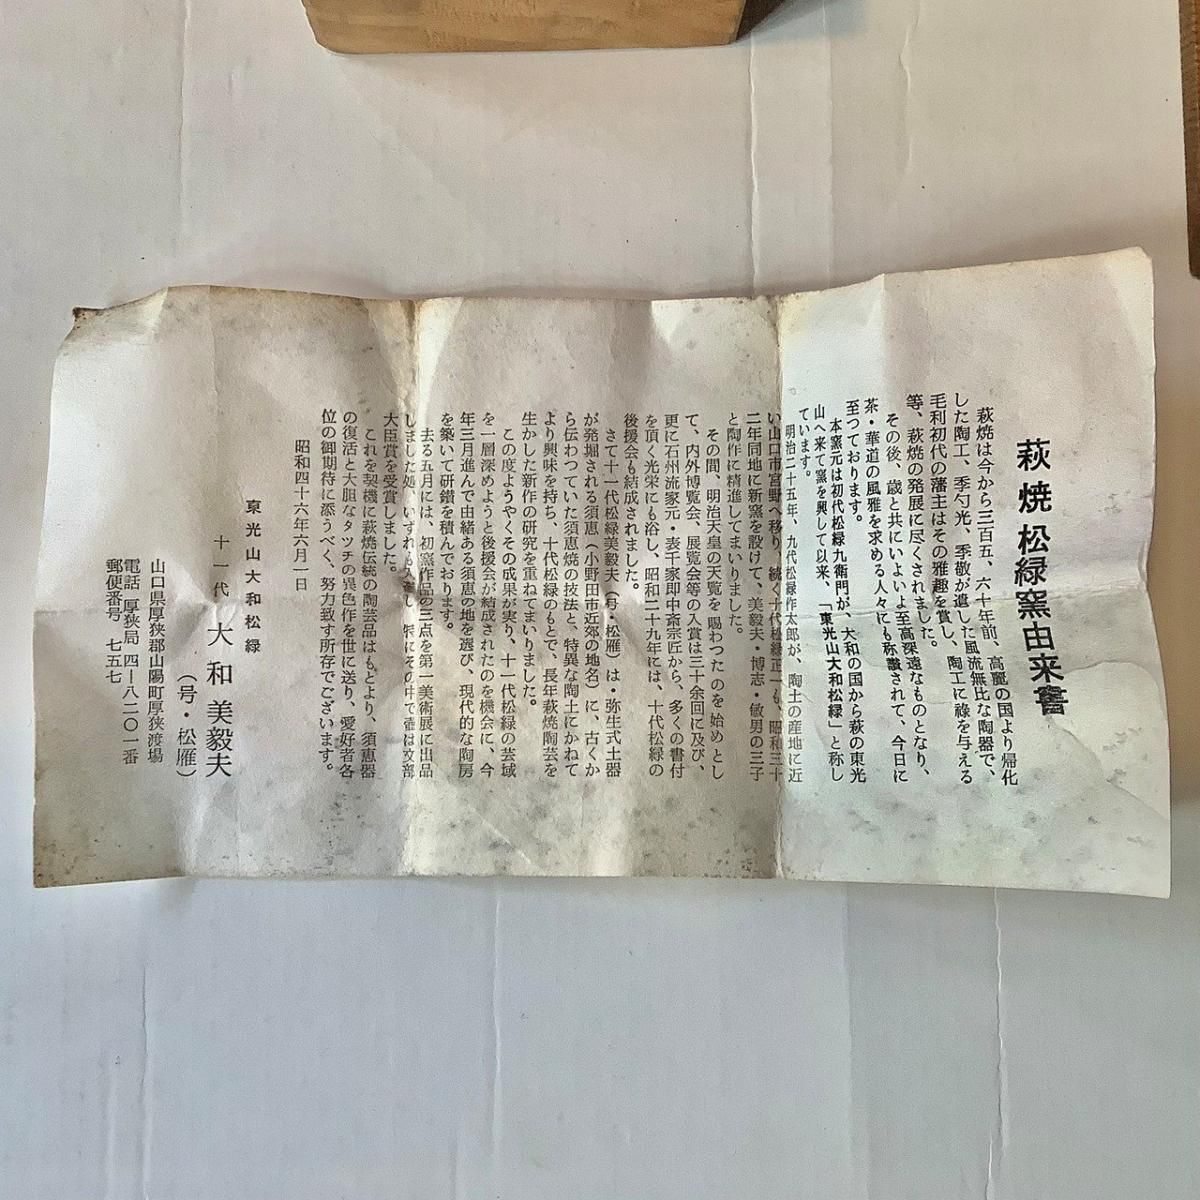 萩焼松緑窯由来書
萩焼は今から三百五、六十年前、高麗の国より帰化
した陶工、李勺光、李敬が遺した風流無比な陶器で、
毛利初代の藩主はその雅趣を賞し、陶工に祿を与える
等、萩焼の発展に尽くされました。
その後、歳と共にいよいよ至高深遠なものとなり、
茶・華道の風雅を求める人々にも称讃されて、今日に
至つております。
本窯元は初代松緑九衛門が、大和の国から萩の東光
山へ来て窯を興して以来、「東光山大和松緑」と称し
ています。
明治二十五年、九代松緑作太郎が、陶土の産地に近
い山口市宮野へ移り、続く十代松緑正一も、昭和三十
二年同地に新窯を設けて、美毅夫・博志・敏男の三子
と陶作に精進してまいりました。
その間、明治天皇の天覧を賜わつたのを始めとし
て、内外博覧会、展覧会等の入賞は三十余回に及び、
更に石州流家元・表千家即中斎宗匠から、多くの書付
を頂く光栄にも浴し、昭和二十九年には、十代松緑の
後援会も結成されました。
さて十一代松緑美毅夫（号・松雁）は・弥生式土器
が発堀される須恵（小野田市近郊の地名）に、古くか
ら伝わつていた須恵焼の技法と、特異な陶土にかねて
より興味を持ち、十代松緑のもとで、長年萩焼陶芸を
生かした新作の研究を重ねてまいりました。
この度ようやくその成果が実り、十一代松緑の芸域
を一層深めようと後援会が結成されたのを機会に、今
年三月進んで由緒ある須恵の地を選び、現代的な陶房
を築いて研鑽を積んでおります。
去る五月には、初窯作品の三点を第一美術展に出品
しました処、いずれも入選し特にその中で壷は文部
大臣賞を受賞しました。
これを契機に萩焼伝統の陶芸品はもどより、須恵器
の復活と大胆なタツチの異色作を世に送り、愛好者各
位の御期待に添うべく、努力致す所存でございます。
昭和四十六年六月一日
東光山大和松緑
十一代 大和美毅夫
（号・松雁）
山口県厚狭郡山陽町厚狭渡場
電話 厚狭局 四―八二〇一番
郵便番号 七五七